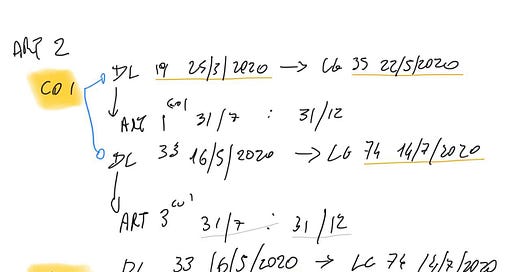 ART 2
CO 1
DL 19 25/3/2020 → LG 35 22/5/2020
ART 1 CO1 31/7 : 31/12
DL 33 16/5/2020 → LG 74 14/7/2020
ART 3 CO 1 31/7 : 31/12
DL 33 16/5/2020 → LG 74 14/7/2020